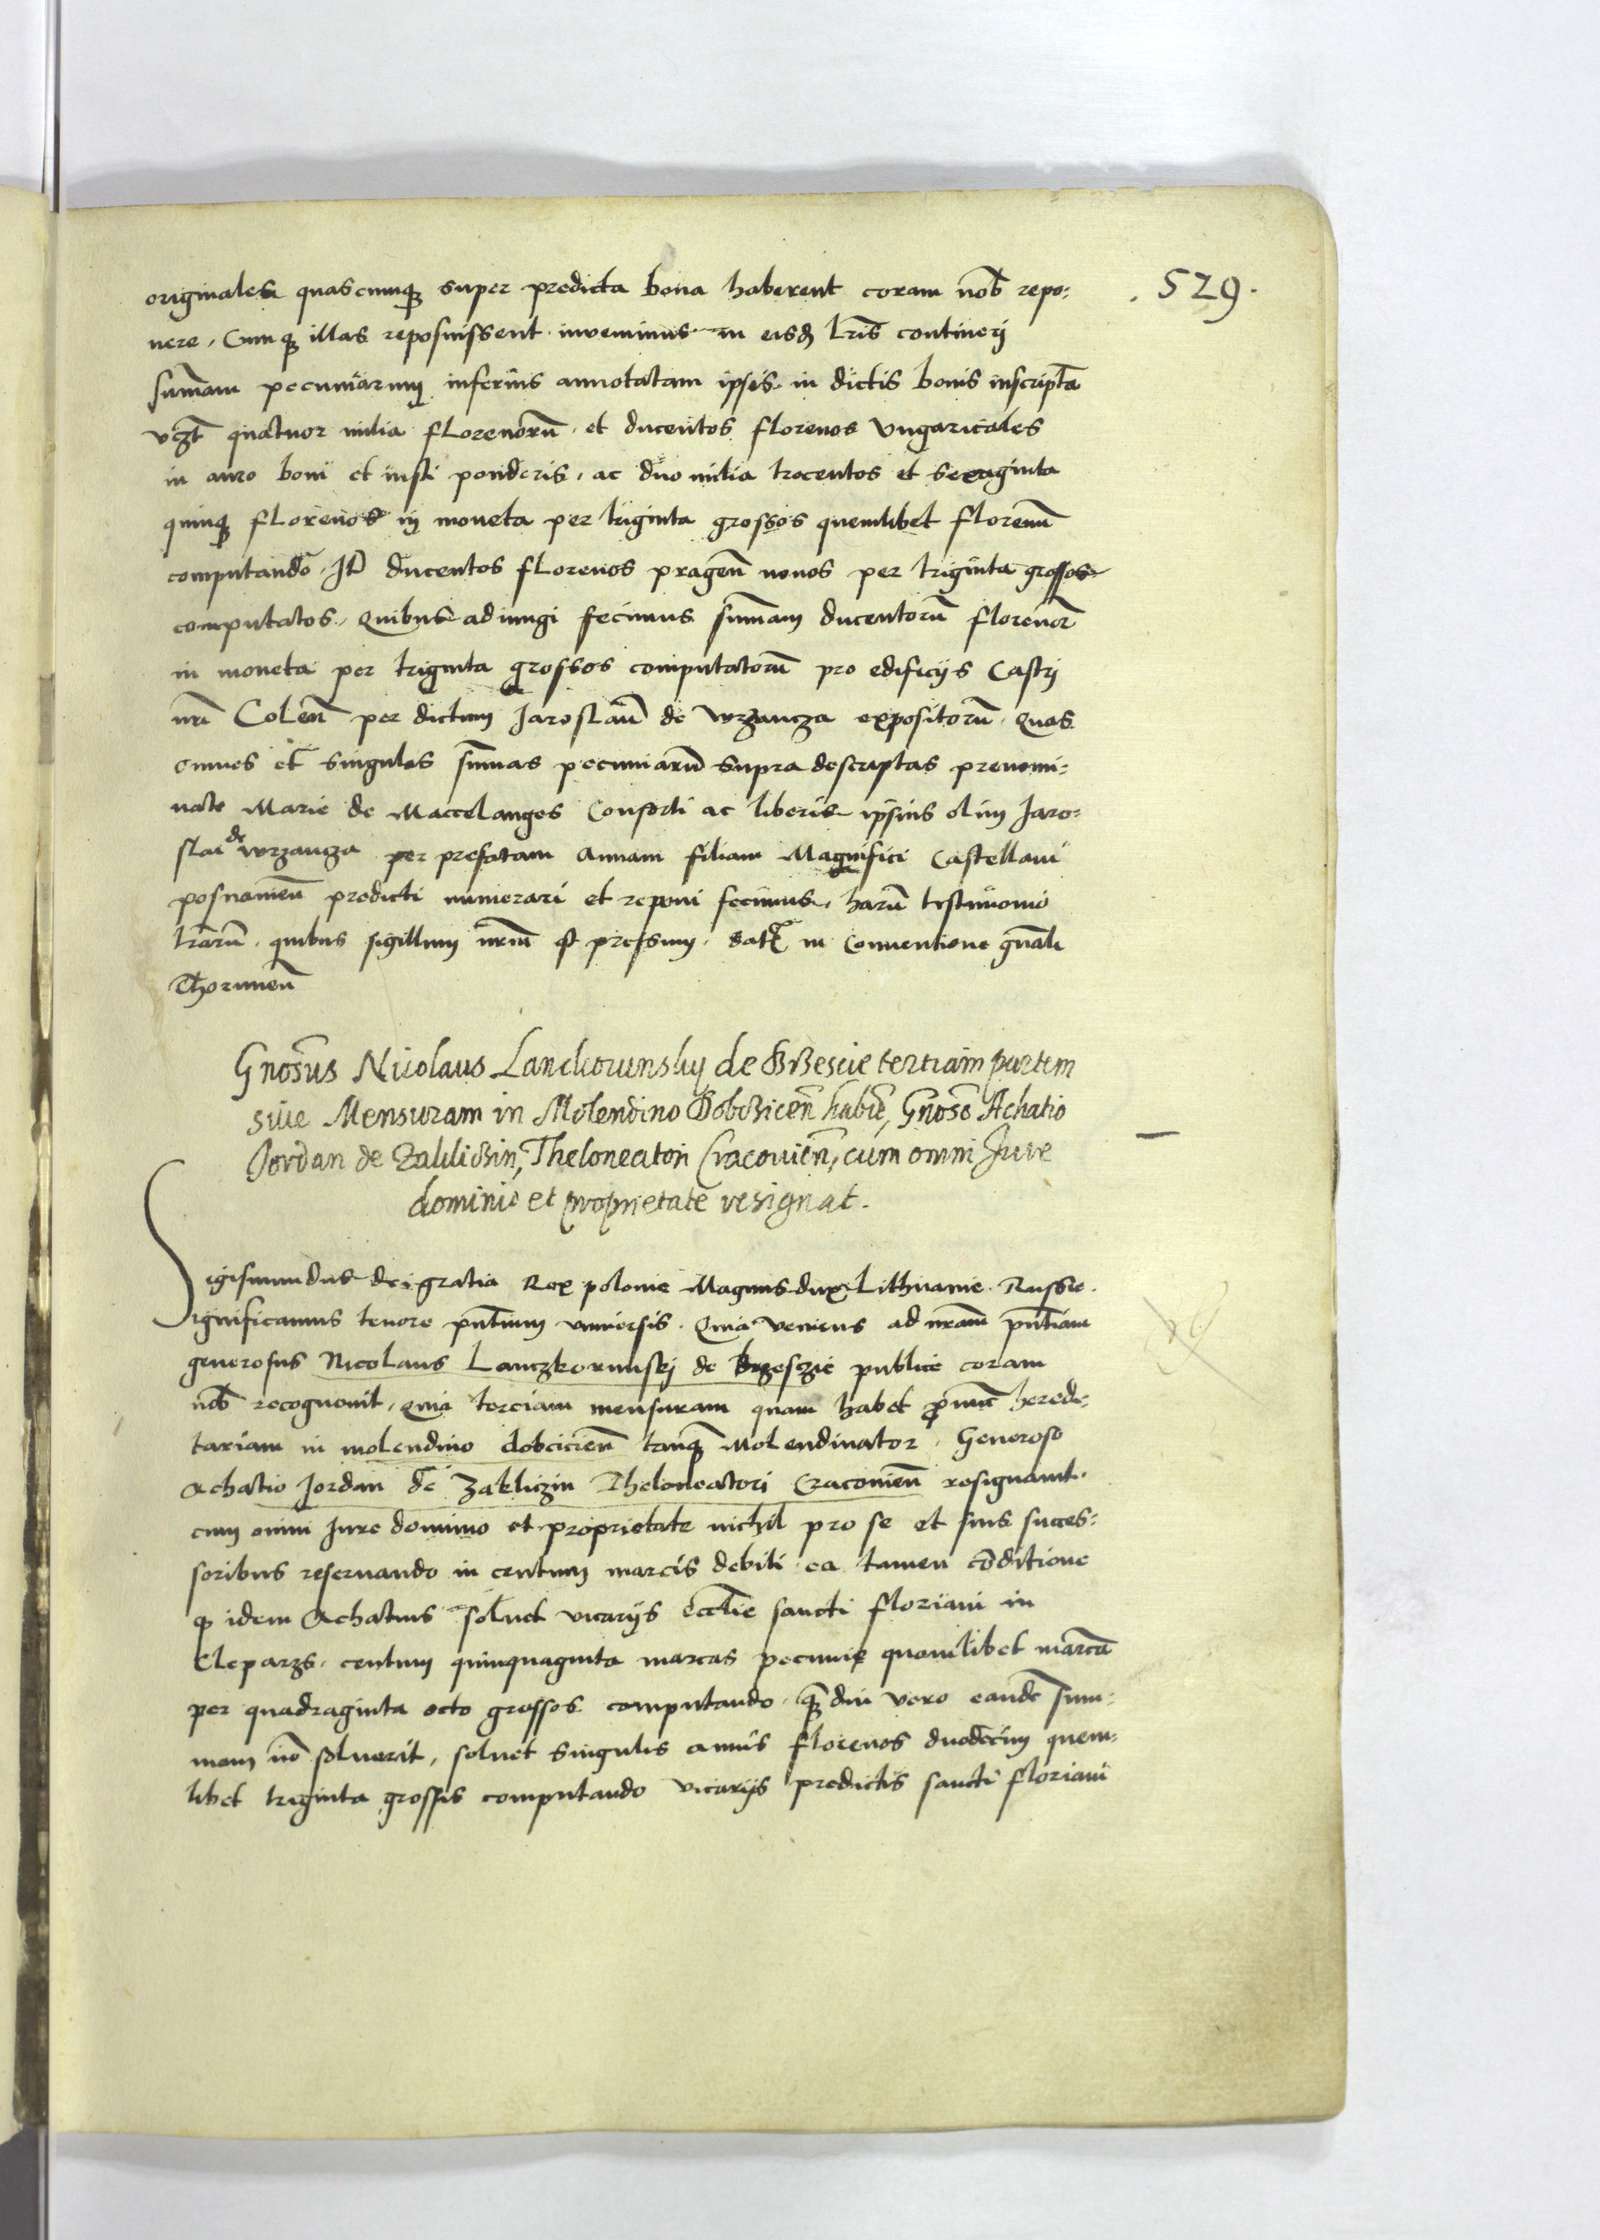 . 529 .
originales quascumq super predicta bona haberent coram nob repo:
nere, Cumq illas reposuissent inuenimus in eisd lris contineri
summam pecuniarum inferius annotatam ipsis in dictis bonis inscripta
vcz quatuor milia florenoru et ducentos florenos vngaricales
in auro boni et iusti ponderis, ac duo milia trecentos et sexaginta
quinq florenos in moneta per triginta grossos quemlibet florenu
computando, Itm ducentos florenos pragen nouos per triginta grossos
computatos, Quibus adiungi fecimus summam ducentoru florenor
in moneta per triginta grossos computatoru pro edificijs Castri
nri Colen per dictum Jaroslau de wrzancza expositoru, Quas
omnes et singulas summas pecuniaru supra descriptas prenomi:
nate Marie de Maccelanges Consorti ac liberis ipsius olim Jaro:
slai de wrzancza per prefatam Annam filiam Magnifici Castellani
posnanien predicti numerari et reponi fecimus, haru testimonio
lraru, quibus sigillum nrum est pressum, Dat in Conuentione gnali
Thorunien
Gnosus Nicolaus Lanckorunsky de Brzescie tertiam partem
sive Mensuram in Molendino Dobczicen habit, Gnoso Achatio
Jordan de Zakliczin, Theloneatori Cracovien, cum omni Jure
dominio et proprietate resignat.
Sigismundus dei gratia Rex polonie Magnus dux Lithuanie Russie.
Significamus tenore pntium vniuersis. Quia veniens ad nram pntiam
generosus Nicolaus Lanczkorunskj de brzesczie publice coram
nob recognouit, Quia terciam mensuram quam habet pronunc heredi:
tariam in molendino dobcicien tanq Molendinator, Generoso
Achatio Jordan de Zakliczin Theloneatori Cracouien resignauit
cum omni Jure dominio et proprietate nichil pro se et suis succes:
soribus reseruando in centum marcis debiti ea tamen conditione
q idem Achatius soluet vicarijs ecclie sancti floriani in
Cleparzs, centum quinquaginta marcas pecunie quamlibet marca
per quadraginta octo grossos computando, q diu vero eande sum:
mam no soluerit, soluet singulis annis florenos duodecim quem:
libet triginta grossis computando vicarijs predictis sancti floriani